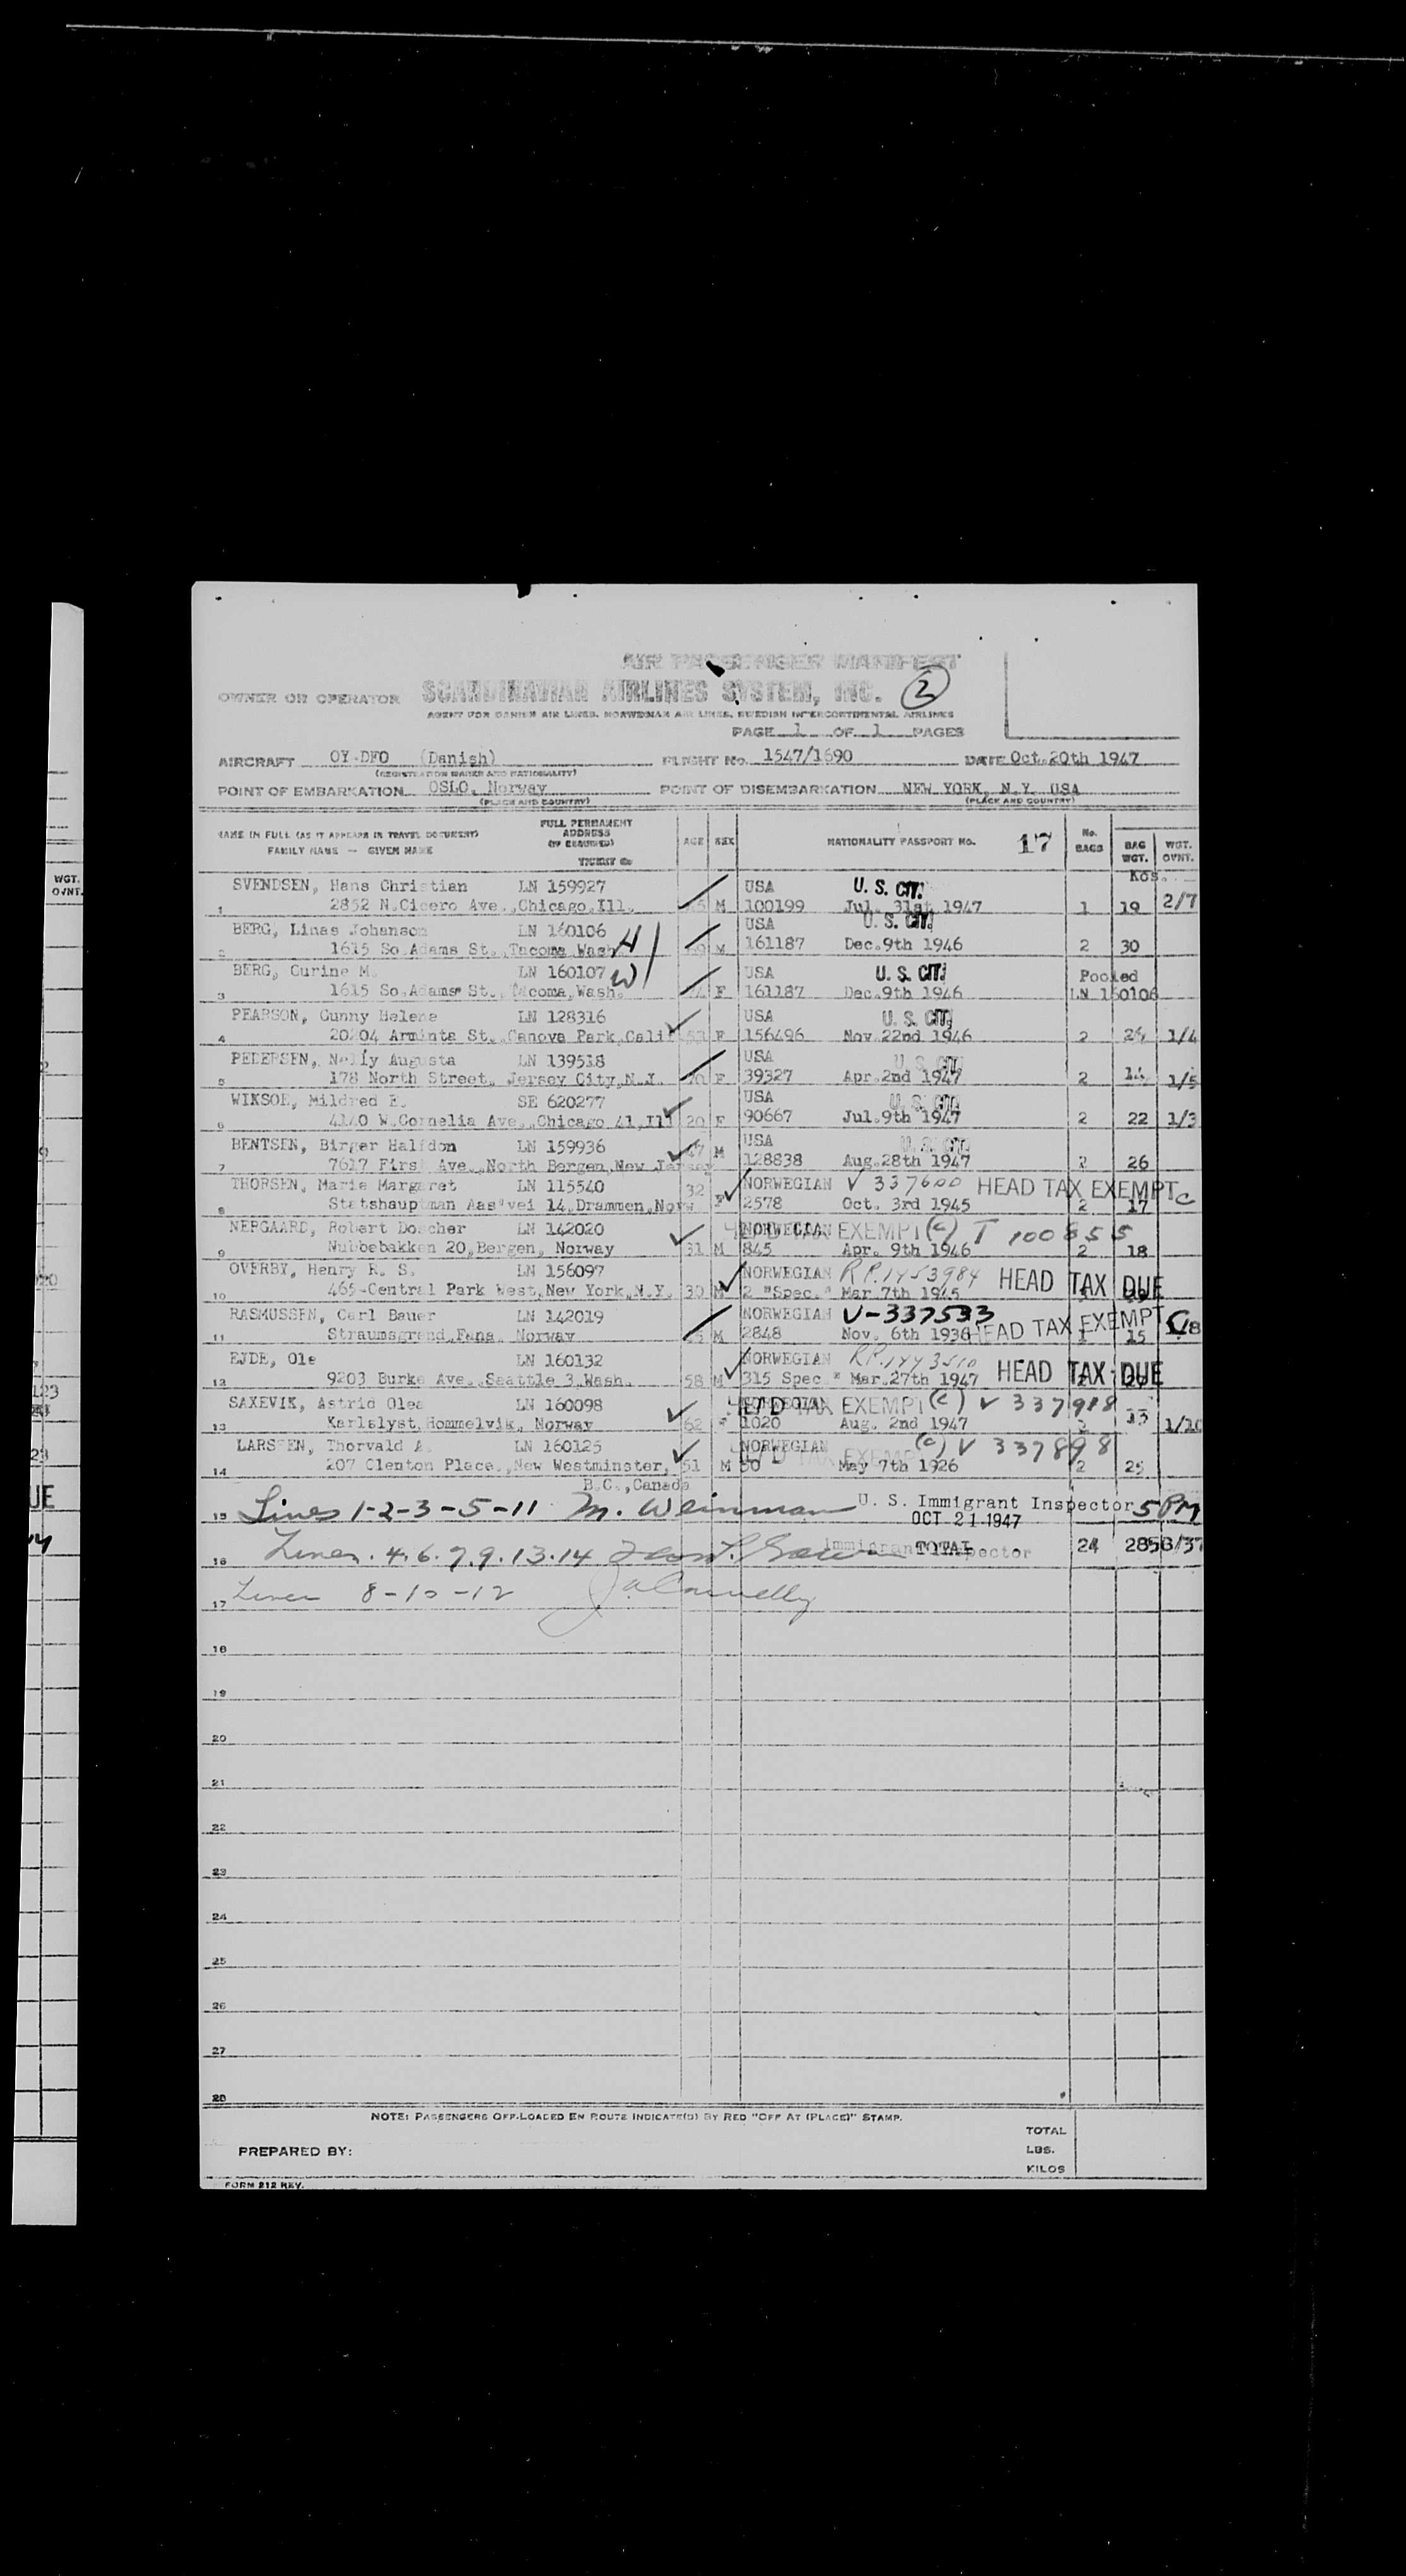 AIR PASSENGER MANIFEST
OWNER OR OPERATOR SCANDINAVIAN AIRLINES SYSTEM, INC. 2
AGENT FOR DANISH AIR LINES, NORWEGIAN AIR LINES, SWEDISH INTERCONTINENTAL AIRLINES
PAGE 1 OF 1 PAGES
AIRCRAFT OY-DFO (Danish) FLIGHT No. 1547/1690 DATE Oct.20th 1947
(REGISTRATION MARKS AND NATIONALITY)
POINT OF EMBARKATION OSLO, Norway POINT OF DISEMBARKATION NEW YORK, N.Y. USA
(PLACE AND COUNTRY) (PLACE AND COUNTRY)
NAME IN FULL (AS IT APPEARS IN TRAVEL DOCUMENT) FAMILY NAME — GIVEN NAME
FULL PERMANENT ADDRESS (IF REQUIRED) TICKET No
AGE SEX NATIONALITY PASSPORT No. 17 No. BAGS BAG WGT. WGT. OVNT.
Kos.
SVENDSEN, Hans Christian LN 159927 USA U. S. CIT.
1 2852 N.Cicero Ave.,Chicago,Ill. M 100199 Jul. 31st 1947 1 19 2/7
BERG, Linas Johanson LN 160106 H USA U. S. CIT.
2 1615 So.Adams St.,Tacoma,Wash. M 161187 Dec.9th 1946 2 30
BERG, Gurine M. LN 160107 W USA U. S. CIT. Pooled
3 1615 So.Adams St.,Tacoma,Wash. F 161187 Dec.9th 1946 LN 160106
PEARSON, Gunny Helene LN 128316 USA U. S. CIT.
4 20204 Arminta St.,Canova Park,Calif 53 F 156496 Nov.22nd 1946 2 1/4
PEDERSEN, Nelly Augusta LN 139518 USA U. S. CIT.
5 178 North Street, Jersey City,N.J. F 39327 Apr.2nd 1947 2 1/5
WIKSOE, Mildred E. SE 620277 USA U. S. CIT.
6 4140 W.Cornelia Ave.,Chicago 41,Ill 20 F 90667 Jul.9th 1947 2 22 1/3
BENTSEN, Birger Halfdon LN 159936 USA U. S. CIT.
7 7617 First Ave.,North Bergen,New Jersey M 128838 Aug.28th 1947 2 26
THORSEN, Marie Margaret LN 115540 32 NORWEGIAN V 337600 HEAD TAX EXEMPT C
8 Statshauptman Aas'vei 14,Drammen,Norw F 2578 Oct. 3rd 1945 2 17
NERGAARD, Robert Dorcher LN 142020 NORWEGIAN EXEMPT (C) T 100855
9 Nubbebakken 20,Bergen, Norway 31 M 845 Apr. 9th 1946 2 18
OVERBY, Henry R. S. LN 156097 NORWEGIAN RP.1453984 HEAD TAX DUE
10 465-Central Park West,New York,N.Y. 30 M 2 "Spec." Mar 7th 1945
RASMUSSEN, Carl Bauer LN 142019 NORWEGIAN V-337533 HEAD TAX EXEMPT C
11 Straumsgrend,Fana, Norway M 2848 Nov. 6th 1936 1 15 1/8
EJDE, Ole LN 160132 NORWEGIAN HEAD TAX DUE
12 9203 Burke Ave.,Seattle 3,Wash. 58 M 315 Spec " Mar.27th 1947
SAXEVIK, Astrid Olea LN 160098 HEAD TAX EXEMPT (C) V 337918
13 Karlslyst,Hommelvik, Norway 62 F 1020 Aug. 2nd 1947 2 33 1/10
LARSSEN, Thorvald A. LN 160125 NORWEGIAN HEAD TAX EXEMPT (C) V 337898
14 207 Clenton Place.,New Westminster, 51 M 50 May 7th 1926 2 25
B.C.,Canada
15 Lines 1-2-3-5-11 M. Weinman U. S. Immigrant Inspector 5 PM
OCT 21 1947
16 Lines. 4.6.7.9.13.14 Immigrant Inspector TOTAL 24 285 3/37
17 Lines 8-10-12 J a Connelly
18
19
20
21
22
23
24
25
26
27
28
NOTE: PASSENGERS OFF-LOADED EN ROUTE INDICATE(D) BY RED "OFF AT (PLACE)" STAMP.
TOTAL
PREPARED BY: LBS.
KILOS
FORM 212 REV.
WGT.
OVNT.